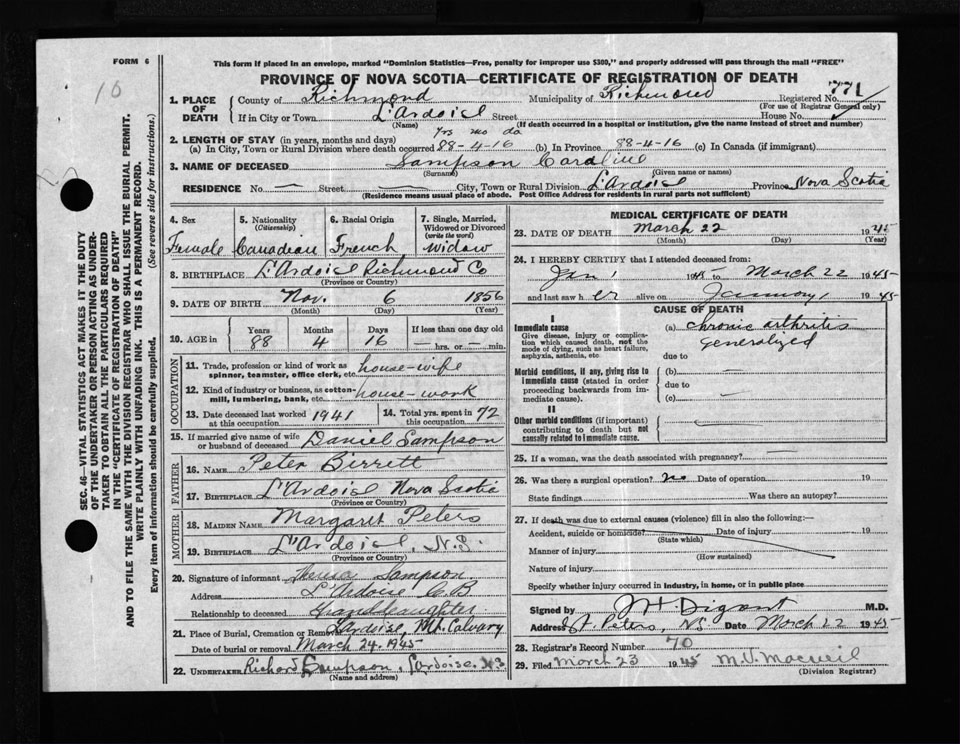 FORM 6
This form if placed in an envelope, marked "Dominion Statistics—Free, penalty for improper use $300," and properly addressed will pass through the mail "FREE"
10
PROVINCE OF NOVA SCOTIA—CERTIFICATE OF REGISTRATION OF DEATH
1. PLACE OF DEATH County of Richmond Municipality of Richmond Registered No. 771
(For use of Registrar General only)
If in City or Town L'Ardoise Street House No.
(Name) (If death occurred in a hospital or institution, give the name instead of street and number)
yrs mo da
2. LENGTH OF STAY (in years, months and days)
(a) In City, Town or Rural Division where death occurred 88-4-16 (b) In Province 88-4-16 (c) In Canada (if immigrant)
3. NAME OF DECEASED Sampson Caroline
(Surname) (Given name or names)
RESIDENCE No. — Street — City, Town or Rural Division L'Ardoise Province Nova Scotia
(Residence means usual place of abode. Post Office Address for residents in rural parts not sufficient)
4. Sex Female
5. Nationality (Citizenship) Canadian
6. Racial Origin French
7. Single, Married, Widowed or Divorced (write the word) Widow
8. BIRTHPLACE L'Ardoise Richmond Co
(Province or Country)
9. DATE OF BIRTH Nov. 6 1856
(Month) (Day) (Year)
10. AGE in Years 88 Months 4 Days 16 If less than one day old — hrs. or — min.
OCCUPATION
11. Trade, profession or kind of work as spinner, teamster, office clerk, etc. house-wife
12. Kind of industry or business, as cotton-mill, lumbering, bank, etc. house-work
13. Date deceased last worked at this occupation 1941
14. Total yrs. spent in this occupation 72
15. If married give name of wife or husband of deceased Daniel Sampson
FATHER
16. NAME Peter Birrett
17. BIRTHPLACE L'Ardoise Nova Scotia
(Province or Country)
MOTHER
18. MAIDEN NAME Margaret Peters
19. BIRTHPLACE L'Ardoise, N.S.
(Province or Country)
20. Signature of informant Sampson
Address L'Ardoise C B
Relationship to deceased Granddaughter
21. Place of Burial, Cremation or Removal Lardoise, Mt. Calvary
Date of burial or removal March 24, 1945
22. UNDERTAKER Richard Sampson, Lardoise, N.S.
(Name and address)
MEDICAL CERTIFICATE OF DEATH
23. DATE OF DEATH March 22 1945
(Month) (Day) (Year)
24. I HEREBY CERTIFY that I attended deceased from:
Jan 1 1945 to March 22 1945
and last saw her alive on January 1 1945
CAUSE OF DEATH
I
Immediate cause
Give disease, injury or complication which caused death, not the mode of dying, such as heart failure, asphyxia, asthenia, etc
(a) chronic arthritis
Generalized
due to
Morbid conditions, if any, giving rise to immediate cause (stated in order proceeding backwards from immediate cause).
(b) —
due to
(c) —
II
Other morbid conditions (if important) contributing to death but not causally related to immediate cause.
25. If a woman, was the death associated with pregnancy? —
26. Was there a surgical operation? no Date of operation 19
State findings Was there an autopsy?
27. If death was due to external causes (violence) fill in also the following:—
Accident, suicide or homicide? Date of injury 19
(State which)
Manner of injury
(How sustained)
Nature of injury
Specify whether injury occurred in industry, in home, or in public place
Signed by M.D.
Address St. Peters, NS Date March 22 1945
28. Registrar's Record Number 70
29. Filed March 23 1945 M.V. Macneil
(Division Registrar)
SEC. 46—VITAL STATISTICS ACT MAKES IT THE DUTY
OF THE UNDERTAKER OR PERSON ACTING AS UNDER-
TAKER TO OBTAIN ALL THE PARTICULARS REQUIRED
IN THE "CERTIFICATE OF REGISTRATION OF DEATH"
AND TO FILE THE SAME WITH THE DIVISION REGISTRAR WHO SHALL ISSUE THE BURIAL PERMIT.
WRITE PLAINLY WITH UNFADING INK—THIS IS A PERMANENT RECORD.
Every item of information should be carefully supplied. (See reverse side for instructions.)